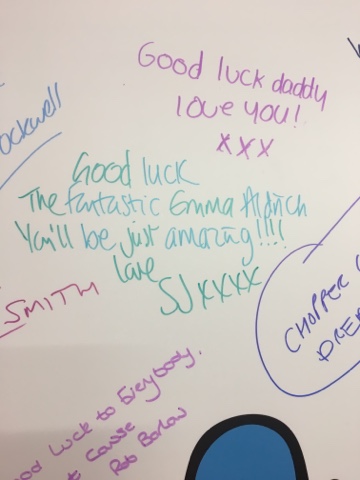 Good luck daddy
love you!
xxx
ockwell
Good luck
The fantastic Emma Aldrich
You'll be just amazing!!!!
love
SJ xxxx
SMITH
CHOPPER
ood Luck to Everybody.
Course
Rob Barlow